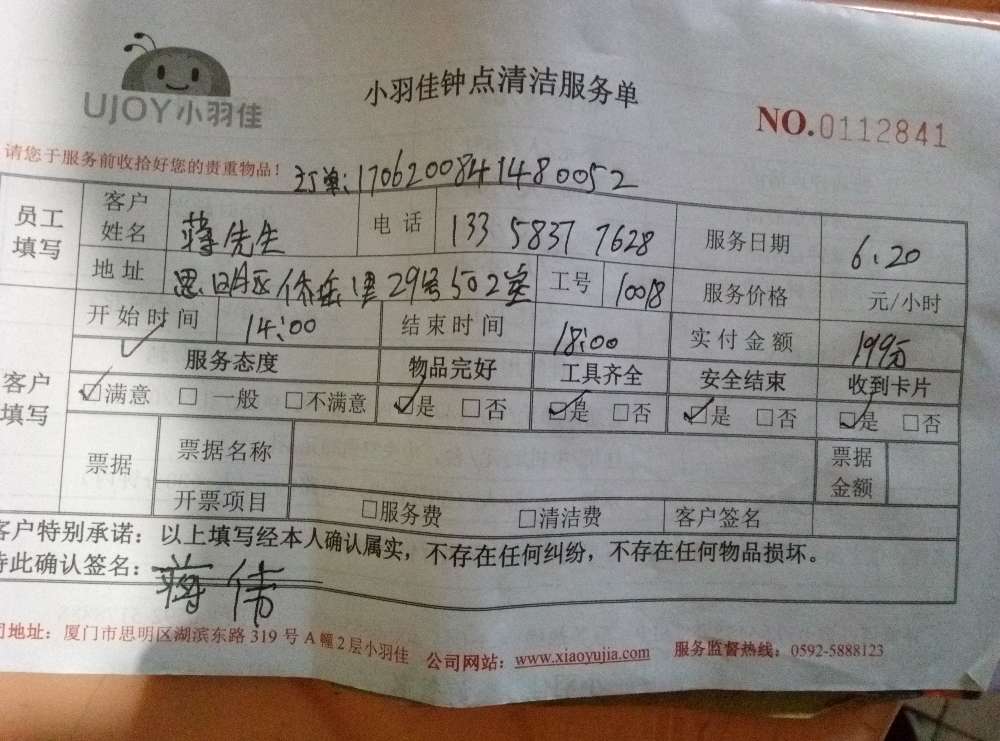 UJOY小羽佳
小羽佳钟点清洁服务单
NO.0112841
请您于服务前收拾好您的贵重物品!
订单:1706200841480052
员工填写 客户姓名 蒋先生 电话 133 5837 7628 服务日期 6.20
地址 思明区 29号502室 工号 10018 服务价格 元/小时
开始时间 14:00 结束时间 18:00 实付金额 199元
客户填写 服务态度 物品完好 工具齐全 安全结束 收到卡片
☑满意 □一般 □不满意 ☑是 □否 ☑是 □否 ☑是 □否 ☑是 □否
票据 票据名称 票据金额
开票项目 □服务费 □清洁费 客户签名
客户特别承诺:以上填写经本人确认属实,不存在任何纠纷,不存在任何物品损坏。
特此确认签名:蒋伟
司地址:厦门市思明区湖滨东路319号A幢2层小羽佳 公司网站:www.xiaoyujia.com 服务监督热线:0592-5888123